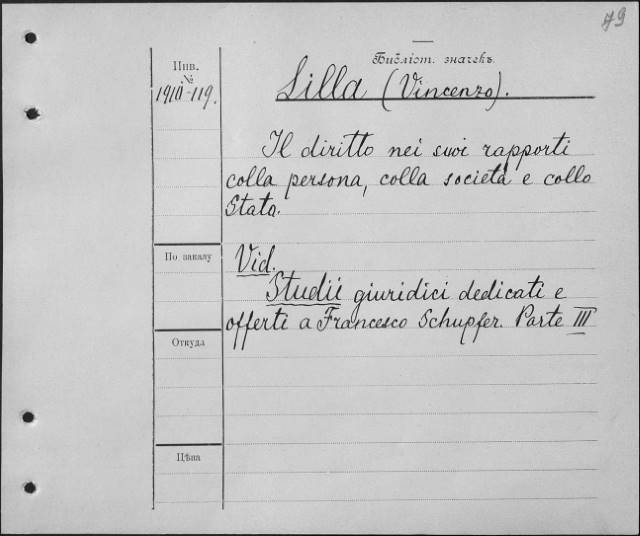 79
Библіот. значекъ.
Инв.
№
1910-119.
Lilla (Vincenzo).
Il diritto nei suoi rapporti
colla persona, colla società e collo
Stato.
По заказу
Vid.
Studii giuridici dedicati e
offerti a Francesco Schupfer. Parte III
Откуда
Цѣна